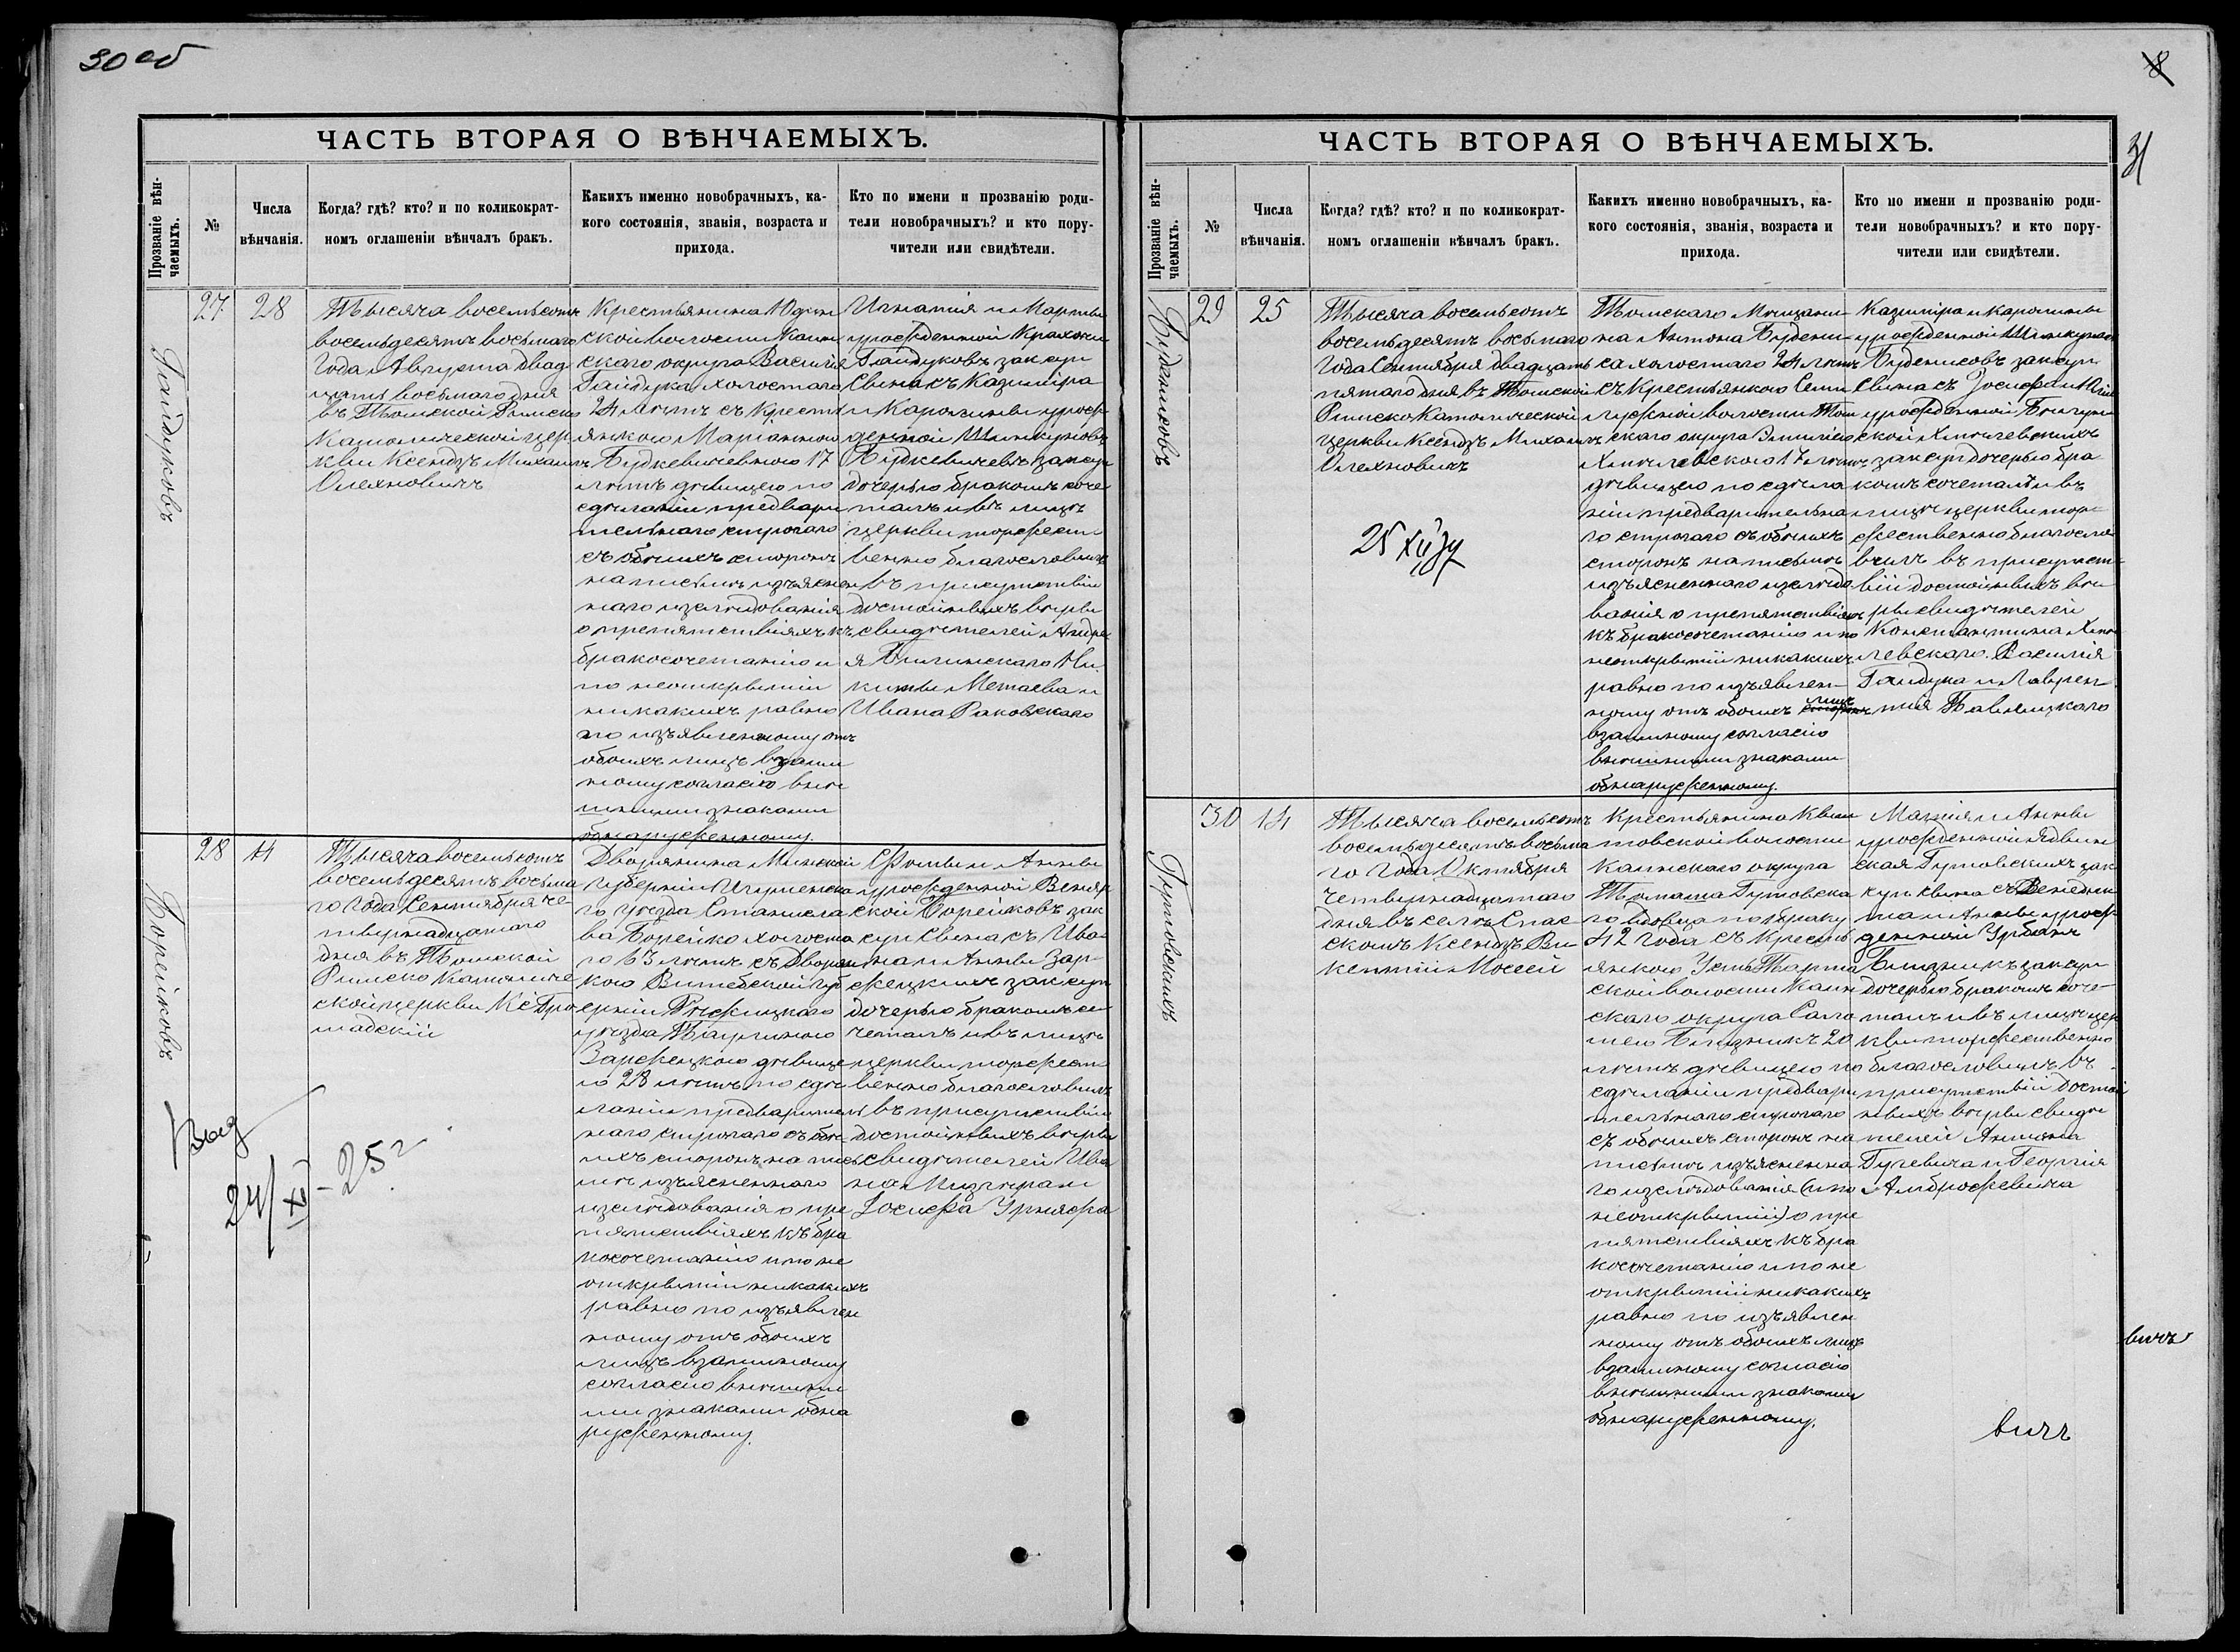 30 об
ЧАСТЬ ВТОРАЯ О ВѢНЧАЕМЫХЪ.
Прозваніе вѣн-
чаемыхъ.
№
Числа
вѣнчанія.
Когда? гдѣ? кто? и по коликократ-
номъ оглашеніи вѣнчалъ бракъ.
Какихъ именно новобрачныхъ, ка-
кого состоянія, званія, возраста и
прихода.
Кто по имени и прозванію роди-
тели новобрачныхъ? и кто пору-
чители или свидѣтели.
Гайдуковъ
27
28
Тысяча восемьсотъ
восемьдесятъ восьмаго
Года Августа двад
цать восьмаго дня
въ Томской Римско
Католической цер
кви Ксендзъ Михаилъ
Олехновичъ
Крестьянина Юдин
ской волости Каин
скаго округа Василія
Гайдука холостаго
24 лѣтъ съ Кресть
янкою Маріанною
Будкевичевною 17
лѣтъ дѣвицею по
сдѣланіи предвари
тельнаго строгаго
съ обоихъ сторонъ
на письмѣ изъяснен
наго изслѣдованія
о препятствіяхъ къ
бракосочетанію и
по неоткрытіи
никакихъ равно
по изъявленному отъ
обоихъ лицъ взаим
ному согласію внѣ
шними знаками
обнаруженному.
Игнатія и Марты
урожденной
Гайдуковъ закон
Сына съ Казиміра
и Каролины урож
денной Шинкуновъ
Будкевичевъ закон
дочерью бракомъ соче
талъ и въ лицѣ
церкви торжест
венно благословилъ
въ присутствіи
достойныхъ вѣры
свидѣтелей Андре
я Бялинскаго Ни
киты Метаева и
Ивана Раковскаго
Борейковъ
28
14
Тысяча восемьсотъ
восемьдесятъ восьма
го Года Сентября че
твернадцатаго
дня въ Томской
Римско Католиче
ской церкви Кс Гро
мадскій
Дворянина Минской
губерніи Игуменска
го уѣзда Станисла
ва Борейко холоста
го 63 лѣтъ съ Дворян
кою Витебской губ
ерніи Рѣжицкаго
уѣзда Паулиною
Заржецкою дѣвице
ю 28 лѣтъ по сдѣ
ланіи предваритель
наго строгаго съ обо
ихъ сторонъ на пись
мѣ изъясненнаго
изслѣдованія о пре
пятствіяхъ къ бра
косочетанію и по не
открытіи никакихъ
равно по изъявлен
ному отъ обоихъ
лицъ взаимному
согласію внѣшни
ми знаками обна
руженному.
Ѳомы и Анны
урожденной Венер
ской Борейковъ зак
кун Сына съ Ива
на и Анны Зар
жецкихъ закон
дочерью бракомъ со
четалъ и въ лицѣ
церкви торжест
венно благословилъ
въ присутствіи
достойныхъ вѣры
свидѣтелей Ива
на Мизгира и
Іосифа
Выд
24/XI - 25 г
8
31
ЧАСТЬ ВТОРАЯ О ВѢНЧАЕМЫХЪ.
Прозваніе вѣн-
чаемыхъ.
№
Числа
вѣнчанія.
Когда? гдѣ? кто? и по коликократ-
номъ оглашеніи вѣнчалъ бракъ.
Какихъ именно новобрачныхъ, ка-
кого состоянія, званія, возраста и
прихода.
Кто по имени и прозванію роди-
тели новобрачныхъ? и кто пору-
чители или свидѣтели.
Буденисовъ
29
25
Тысяча восемьсотъ
восемьдесятъ восьмаго
Года Сентября двадцать
пятаго дня въ Томской
Римско Католической
церкви Ксендзъ Михаилъ
Олехновичъ
Томскаго Мѣщани-
на Антона Будени-
са холостаго 24 лѣтъ
съ Крестьянкою Семи
лужной волости Том
скаго округа Эмиліею
Хмѣлевскою 17 лѣтъ
дѣвицею по сдѣла
ніи предварительна
го строгаго съ обоихъ
сторонъ на письмѣ
изъясненнаго изслѣдо
ванія о препятствіяхъ
къ бракосочетанію и по
неоткрытіи никакихъ
равно по изъявлен-
ному отъ обоихъ лицъ
взаимному согласію
внѣшними знаками
обнаруженному.
Казиміра и Каролины
урожденной
Буденисовъ закон
Сына съ Іосифа и
урожденной
ской Хмѣлевскихъ
закон дочерью бра
комъ сочеталъ и въ
лицѣ церкви тор-
жественно благосло
вилъ въ присутст-
віи достойныхъ вѣ
ры свидѣтелей
Константина Хмѣ
левскаго. Василія
Гайдука и Лаврен
тія Павлицкаго
Гутовскихъ
30
14
Тысяча восемьсотъ
восемьдесятъ восьма
го Года Октября
четвернадцатаго
дня въ селѣ Спас-
скомъ Ксендзъ Ви-
кентій Моссей
Крестьянина Кыш
товской волости
Каинскаго округа
Томаша Гутовска
го вдовца по браку
42 года съ Кресть
янкою Усть Тарта
ской волости Каин
скаго округа Сало
меею Близникъ 20
лѣтъ дѣвицею по
сдѣланіи предвари
тельнаго строгаго
съ обоихъ сторонъ на
письмѣ изъясненна
го изслѣдованія (и по
неоткрытіи) о пре
пятствіяхъ къ бра
косочетанію и по не
открытіи никакихъ
равно по изъявлен
ному отъ обоихъ лицъ
взаимному согласію
внѣшними знаками
обнаруженному.
и Анны
урожденной
ская Гутовскихъ зак
кун Сына съ Венедик
та и Анны урож
денной Урбанъ
Близникъ закон
дочерью бракомъ соче-
талъ и въ лицѣ цер
кви торжественно
благословилъ въ
присутствіи достой
ныхъ вѣры свидѣ
телей Антона
Гулевича и Георгія
Амброжевича
вичъ
вичъ